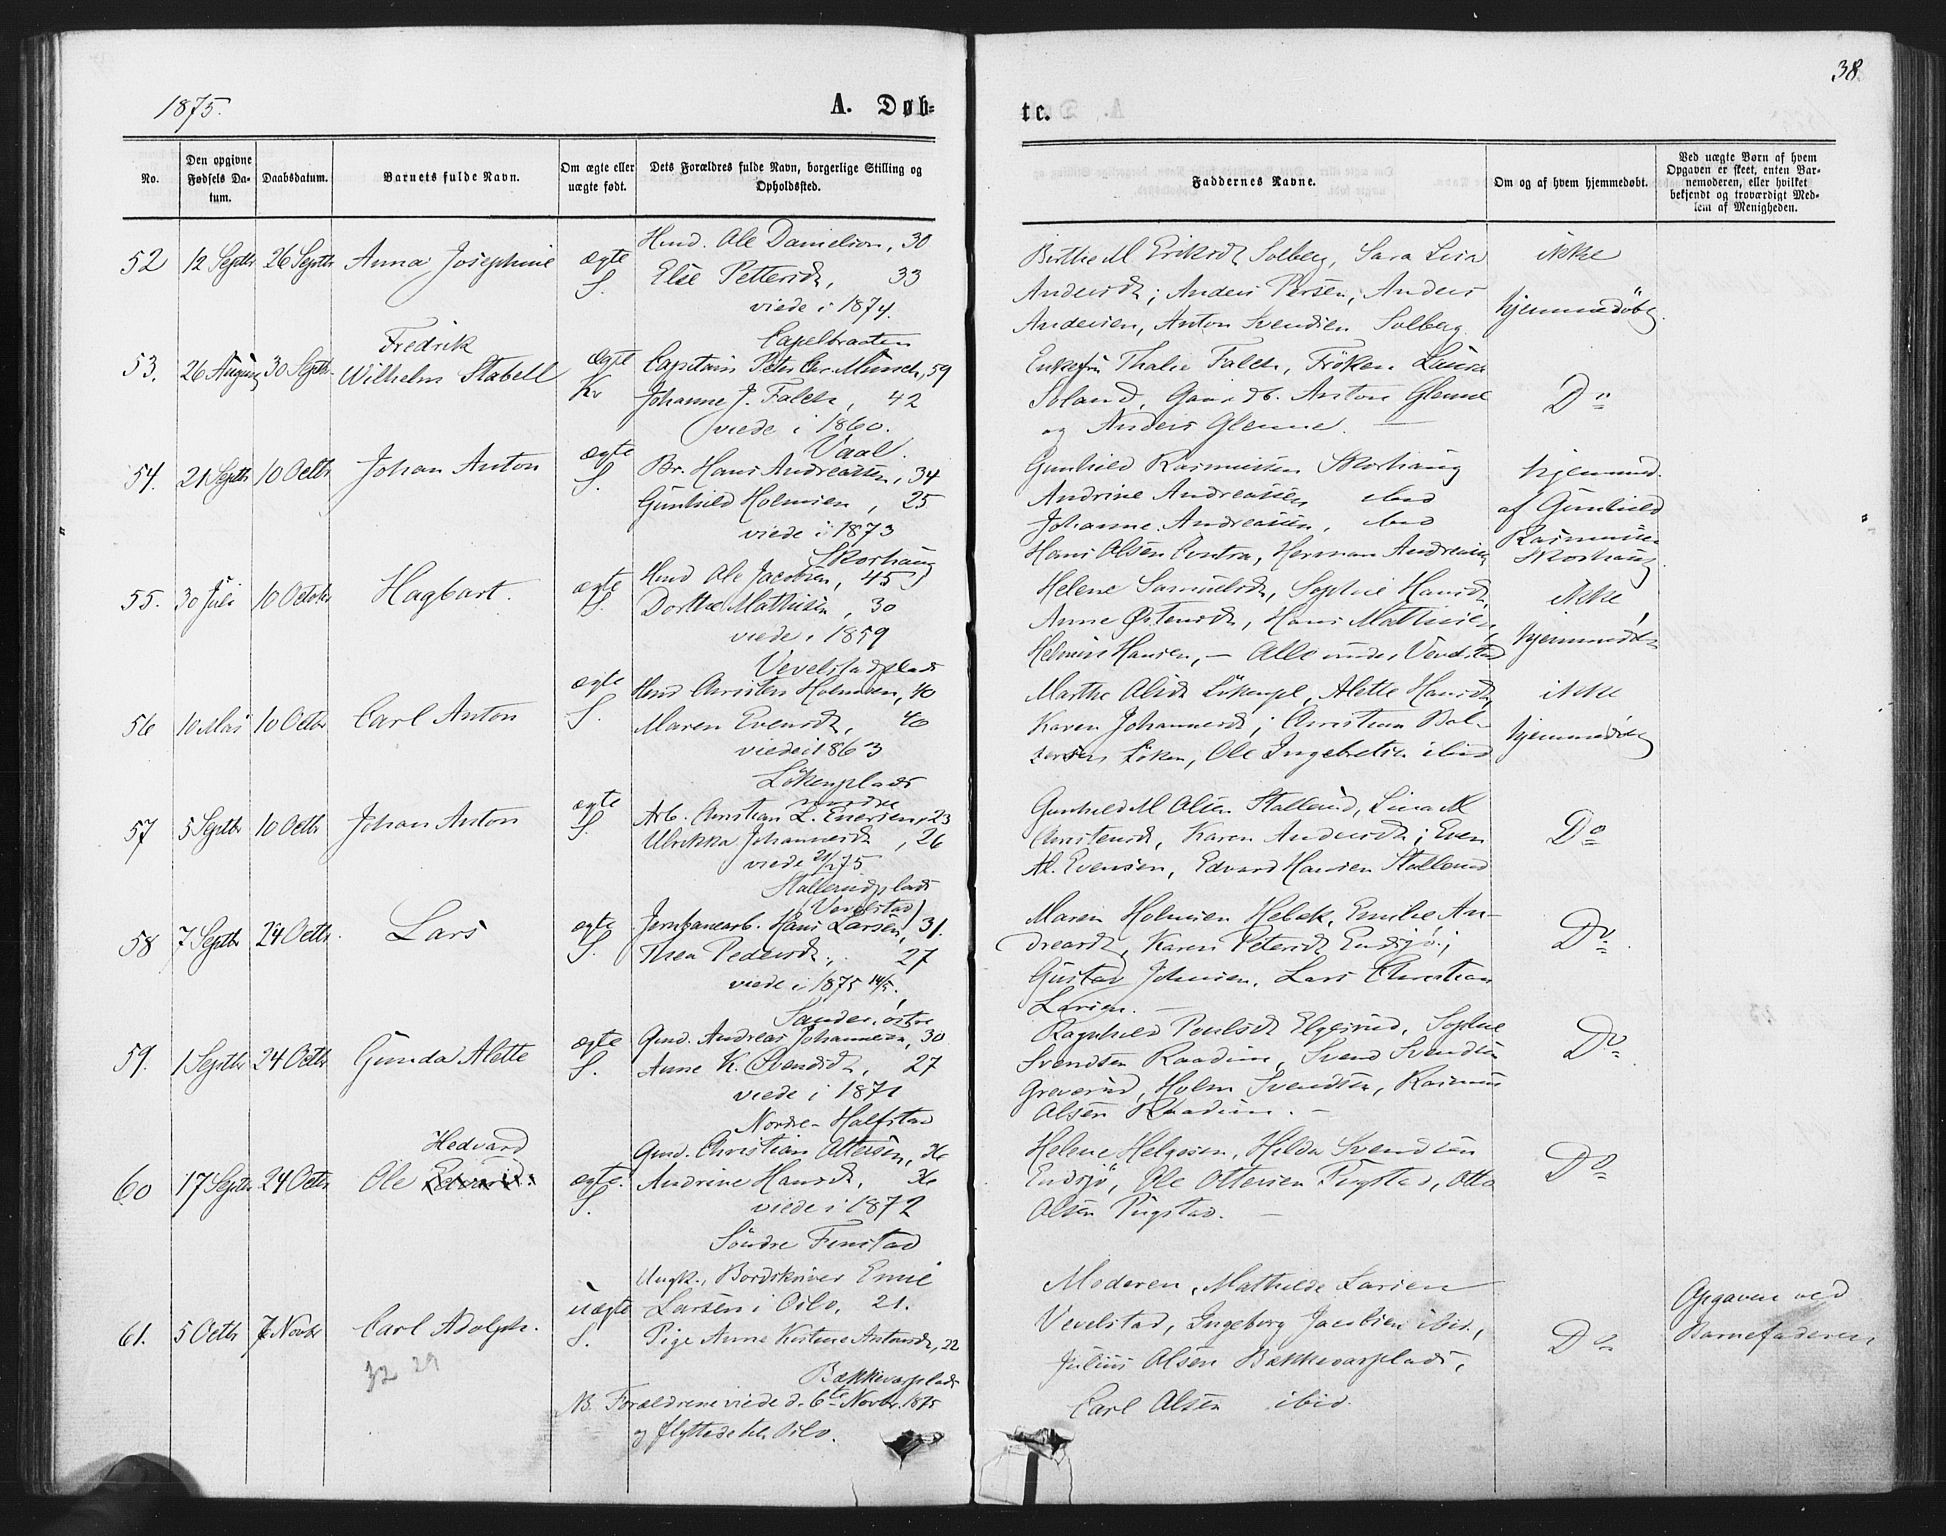 38
1875.
A. Døb-
tc.
No.
Den opgivne
Fødsels Da-
tum.
Daabsdatum.
Barnets fulde Navn.
Om ægte eller
uægte født.
Dets Forældres fulde Navn, borgerlige Stilling og
Opholdssted.
Faddernes Navne.
Om og af hvem hjemmedøbt.
Ved uægte Børn af hvem
Opgaven er skeet, enten Bar-
nemoderen, eller hvilket
bekjendt og troværdigt Med-
lem af Menigheden.
52 12 Septbr 26 Septbr Anna Josephine ægte S.
Hmd. Ole Danielsen, 30
Else Pettersdt, 33
viede i 1874.
Capelbraaten
Birthe M Eriksdt Solberg, Sara Lisa
Andersdt; Anders Persen, Anders
Andersen, Anton Svendsen Solberg
ikke
hjemmedøbt
53. 26 August 30 Septbr. Fredrik
Wilhelm Stabell ægte Kv
Capitain Peter Chr. Munch, 59
Johanne J. Falch, 42
viede i 1860.
Vaal.
Enkefru Thalie Falch, Frøken Laura
Soland, Gaardb. Anton Glenne
og Anders Glenne. —
Do
54. 21 Septbr 10 Octbr Johan Anton ægte S.
Br. Hans Andreassen, 34
Gunhild Holmsen, 25
viede i 1873
Skorhaug
Gunhild Rasmussen Skorhaug
Andrine Andreassen ibid
Johanne Andreassen, ibid
Hans Olsen, Herman Andreassen
hjemmed.
af Gunhild
Rasmussen
Skorhaug.
55. 30 Juli 10 October Hagbart. ægte S.
Hmd Ole Jacobsen, 45
Dorthe Mathisen, 30
viede i 1859
Vevelstadplads
Helene Samuelsdt, Sophie Hansdt,
Anne Østensdt, Hans Mathisen,
Helmer Hansen, — Alle under Vevelstad
ikke
hjemmedøbt
56 10 Mai 10 Octbr Carl Anton ægte S.
Hmd Christen Holmsen, 40
Maren Evensdt, 40
viede i 1863
Løkenplads
nordre
Marthe Olsdt Løkenpl, Alette Hansdt,
Karen Johannesdt; Christian Bal-
zersen Løken, Ole Ingebretsen ibid
ikke
hjemmedøbt
57 5 Septbr 10 Octbr Johan Anton ægte S
Arb. Christian L. Enersen, 23
Ulrikka Johannesdt, 26
viede 21/1 75.
Stallerudplads
(Vevelstad)
Gunhild M Olsen Stallerud, Lina M
Christensdt, Karen Andersdt; Even
Al. Evensen, Edvard Hansen Stallerud
Do
58 7 Septbr 24 Octbr. Lars ægte S.
Jernbanearb. Hans Larsen, 31.
Thea Pedersdt, 27
viede i 1875 14/5.
Sander, østre
Maren Holmsen Hebek, Emilie An-
dreasdt, Karen Petersdt Endsjø;
Gustav Johnsen, Lars Christian
Larsen. —
Do
59. 1 Septbr 24 Octbr Gunda Alette ægte S.
Gmd. Andreas Johannesen, 30
Anne K. Svendsdt, 27
viede i 1871
Nordre-Halfstad
Ragnhild Poulsdt Elgerud, Sophie
Svendsen Raadim, Svend Svendsen
Greverud, Holm Svendsen, Rasmus
Olsen Raadim. —
Do
60 17 Septbr 24 Octbr Ole Hedvard Edvard. ægte. S.
Gmd. Christian Ottersen, 36
Andrine Hansdt, 36
viede i 1872
Søndre Finstad
Helene Helgesen, Hilda Svendsen
Endsjø, Ole Ottersen Fugstad, Otto
Olsen Fugstad. —
Do
61. 5 Octbr 7 Novbr Carl Adolph. uægte S.
32 29
Ungk., Bordskriver Emil
Larsen i Oslo, 21.
Pige Anne Kirstine Antonsdt, 22
Bækkevarplads
NB. Forældrene viede d. 6te Novbr. 1875
og flyttede til Oslo.
Moderen, Mathilde Larsen
Vevelstad, Ingeborg Jacobsen ibid.,
Julius Olsen Bækkevarplads,
Carl Olsen ibid.
Do
Opgaven ved
Barnefaderen.